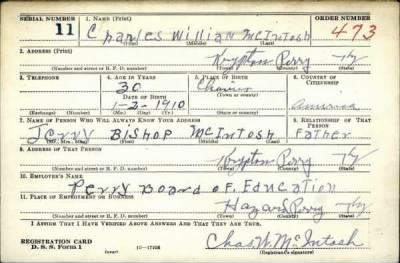 SERIAL NUMBER 1. NAME (Print) ORDER NUMBER
11 Charles William McIntosh 473
(First) (Middle) (Last)
2. ADDRESS (Print)
Krypton Perry Ky
(Number and street or R. F. D. number) (Town) (County) (State)
3. TELEPHONE 4. AGE IN YEARS 5. PLACE OF BIRTH 6. COUNTRY OF CITIZENSHIP
30
DATE OF BIRTH (Town or county)
1-2-1910 America
(Exchange) (Number) (Mo.) (Day) (Yr.) (State or country)
7. NAME OF PERSON WHO WILL ALWAYS KNOW YOUR ADDRESS 8. RELATIONSHIP OF THAT PERSON
Jerry Bishop McIntosh Father
(Mr., Mrs., Miss) (First) (Middle) (Last)
9. ADDRESS OF THAT PERSON
Krypton Perry Ky
(Number and street or R. F. D. number) (Town) (County) (State)
10. EMPLOYER'S NAME
Perry Board of Education
11. PLACE OF EMPLOYMENT OR BUSINESS
Hazard Perry Ky
(Number and street or R. F. D. number) (Town) (County) (State)
I AFFIRM THAT I HAVE VERIFIED ABOVE ANSWERS AND THAT THEY ARE TRUE.
REGISTRATION CARD
D. S. S. Form 1 (over) Chas W. McIntosh
(Registrant's signature)